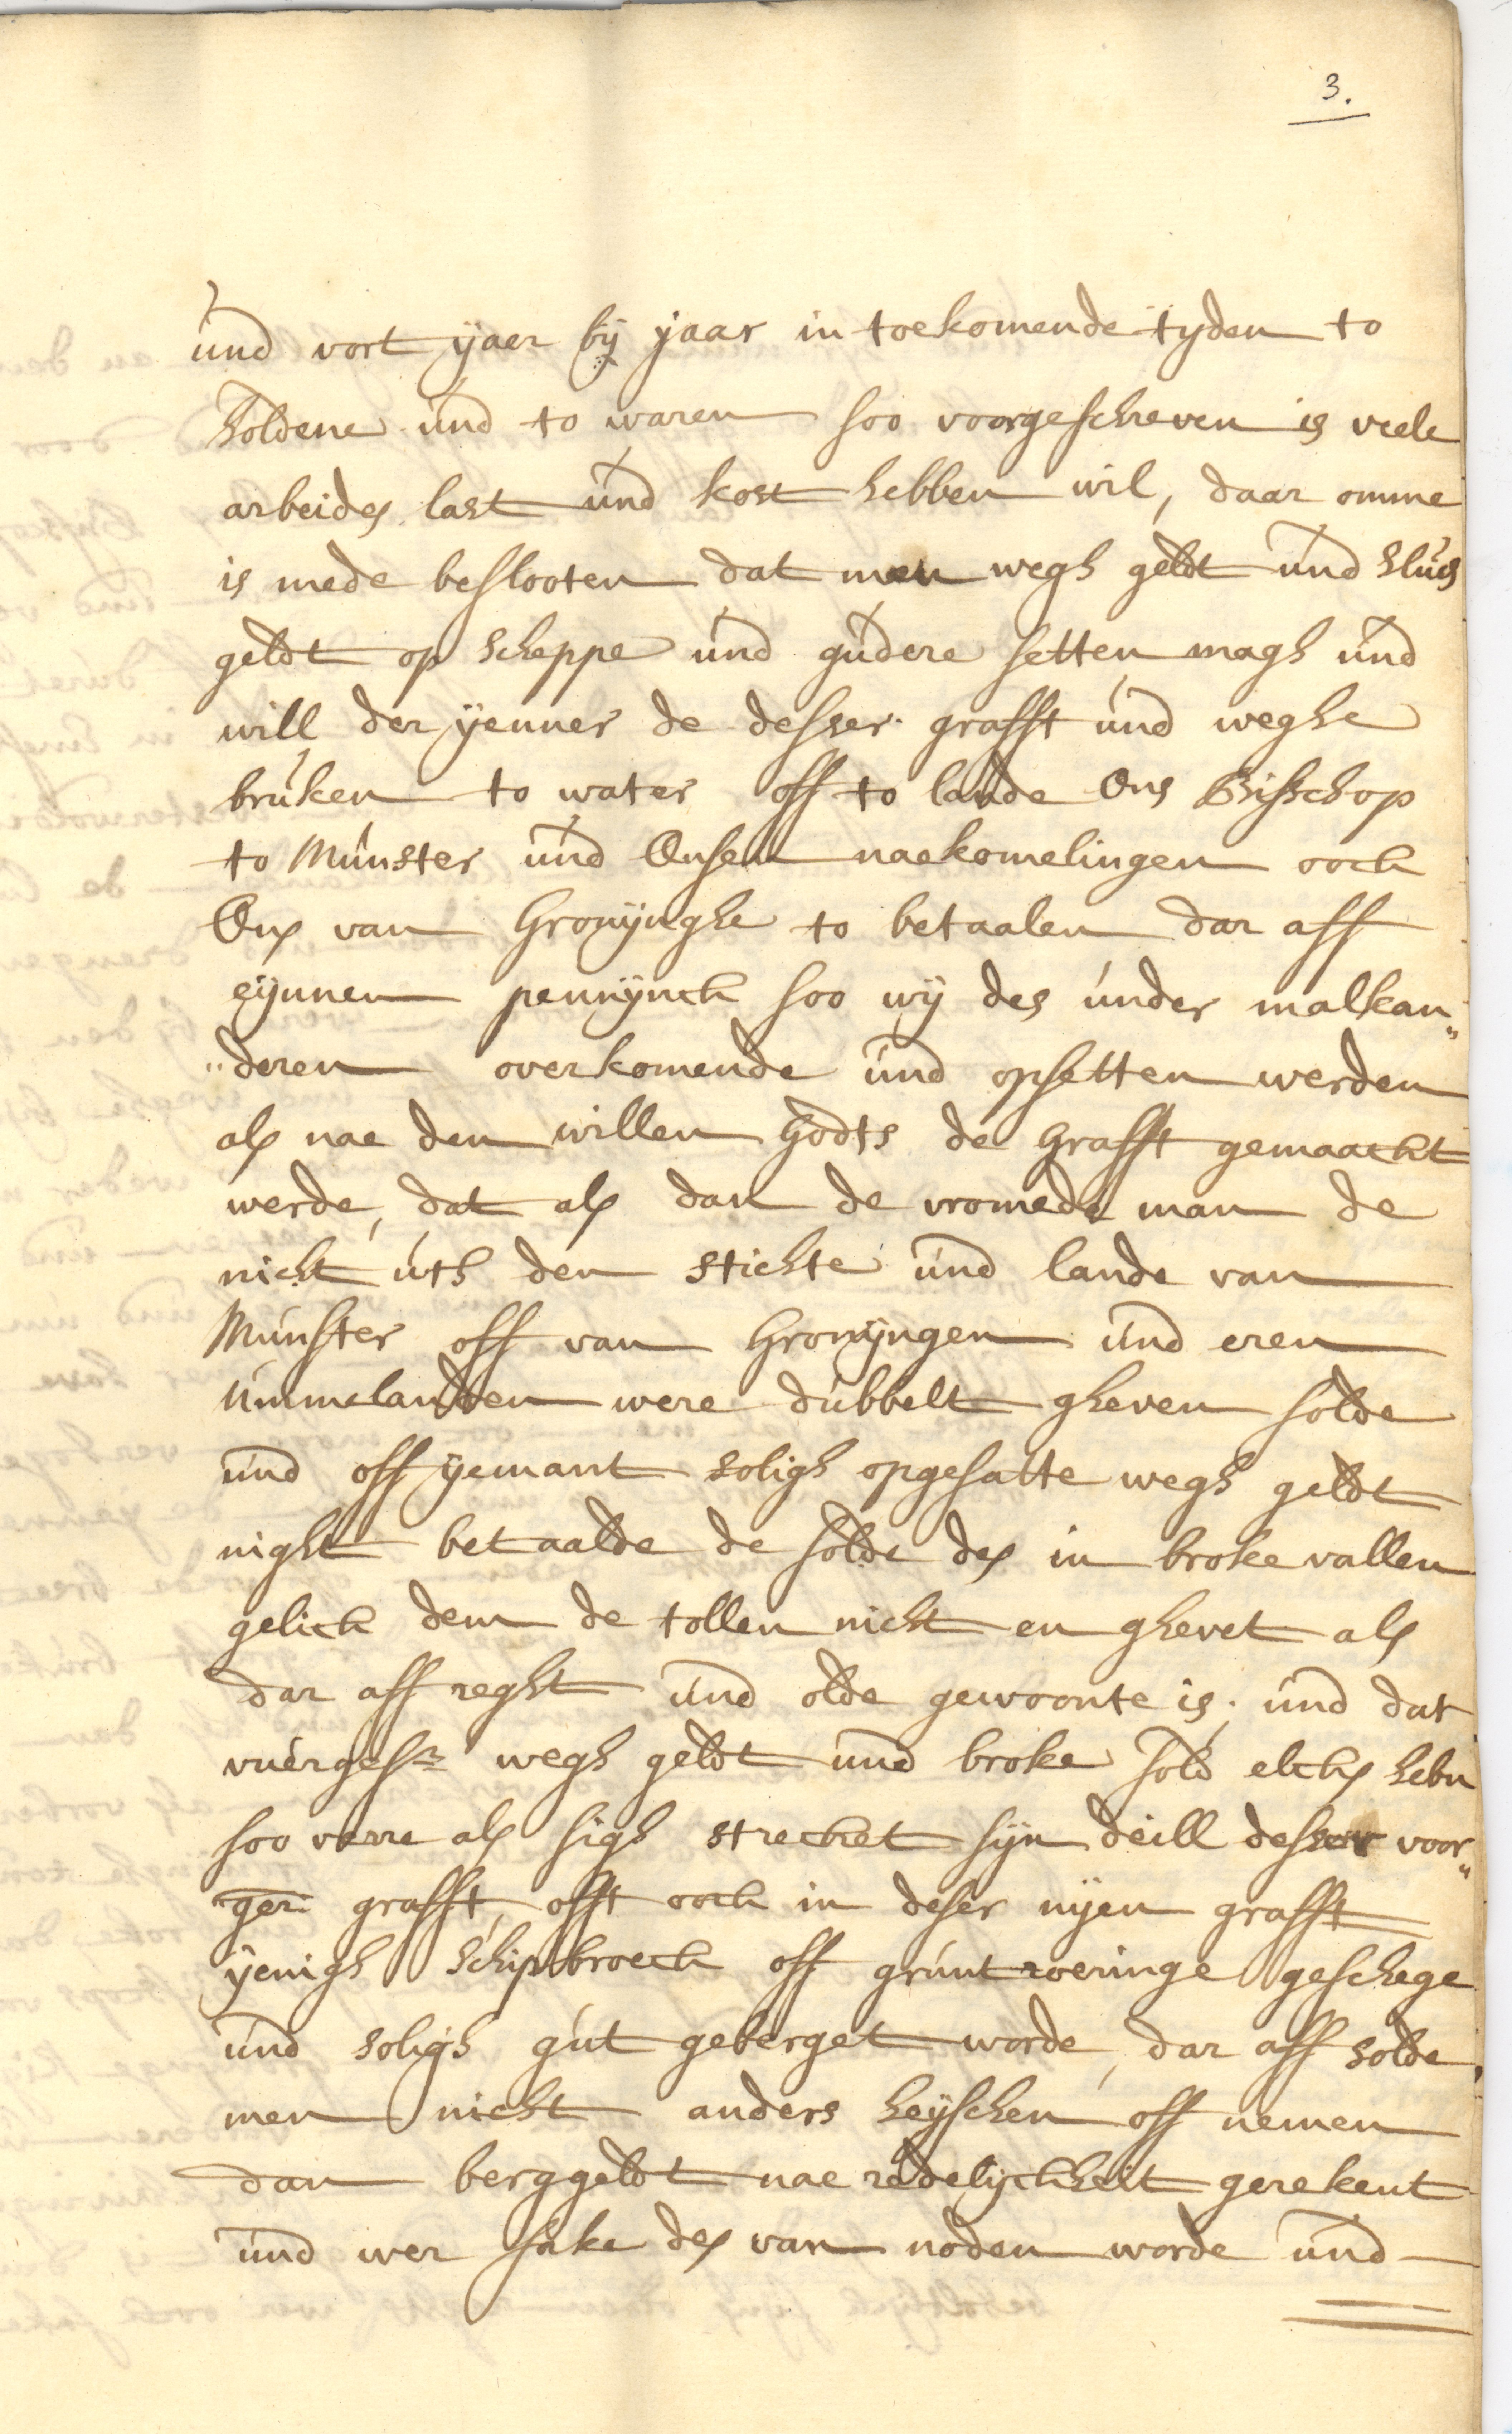 3.
und vort ÿaer bÿ jaar in toekomende tyden to
holdene und to waren soo voorgeschreven is veele
arbeides last und kost hebben wil, daar omme
is mede beslooten dat men wegh geldt und sluis
geldt op scheppe und gudere setten magh und
will der ÿenner de desser grafft und weghe
bruken to water off to lande Ons Bisschop
to Munster und Onsen naekomelingen oock
Ons van Gronÿnghe to betaalen dar aff
eÿnnen pennÿnck soo wÿ des under malkan„
„deren overkomende und opsetten werden
als nae den willen Godts de Grafft gemaackt
werde, dat als dan de vromede man de
nicht uth den stichte und lande van
Munster off van Gronÿngen und eren
Ummelanden were dubbelt gheven solde
und off ÿemant soligh opgesatte wegh geldt
night betaalde de solde des in broke vallen
gelick dem de tollen nicht en ghevet als
dar aff reght und olde gewoonte is. und dat
vuergesr wegh geldt und broke sold elcks hebn
soo verre als sigh strecket sÿn deill desser voor„
ger grafft, offt oock in deser nÿen grafft
ÿenigh Schipbroeck off gruntroeringe geschege
und soligh gut geberget worde, dar aff solde
men nicht anders heÿschen off nemen
dan berggeldt nae redelyckheit gerekent
und wer sake des van noden worde und